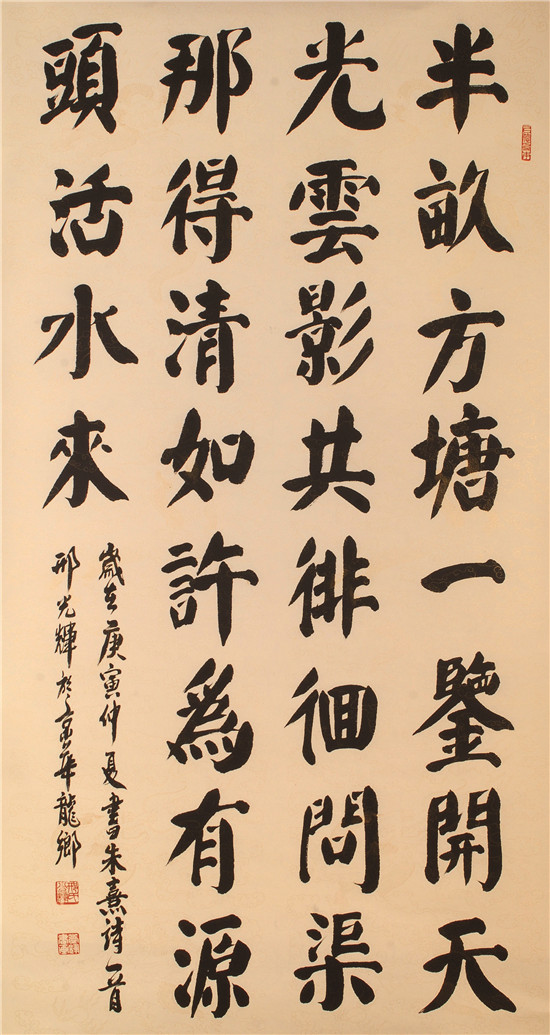 半畝方塘一鑒開天
光雲影共徘徊問渠
那得清如許為有源
頭活水來
歲在庚寅仲夏書朱熹詩一首
邢光輝於京華龍鄉